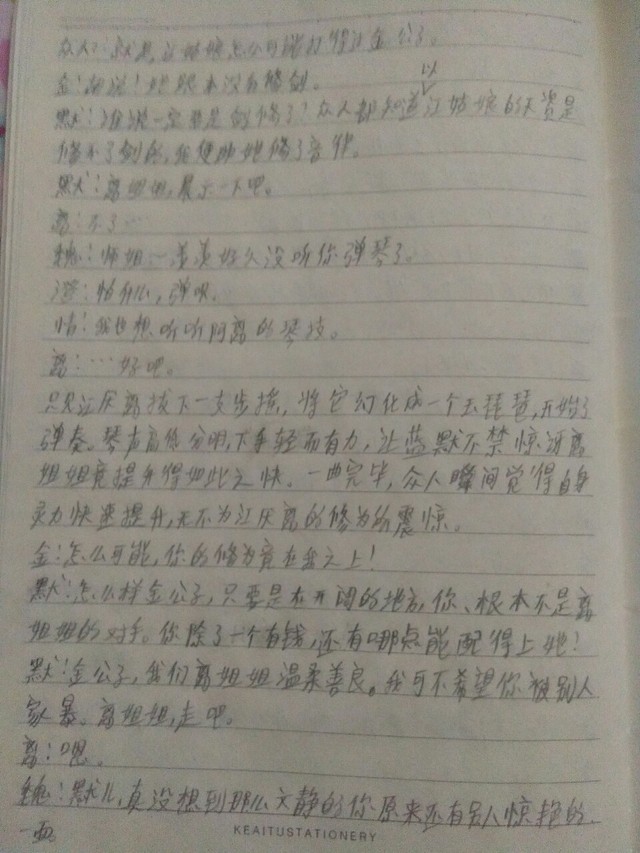 众人：就是，江姑娘怎么可能打得过金公子。
金：胡说！她根本没有修剑。
以
默：谁说一定要是剑修了！众人都知道江姑娘的天资是
修不了剑的，我便助她修了音律。
默：离姐姐，展示一下吧。
离：不了…
魏：师姐…羡羡好久没听你弹琴了。
澄：怕什么，弹呗。
情：我也想听听阿离的琴技。
离：…好吧。
只见江厌离拔下一支步摇，将它幻化成一个玉琵琶，开始了
弹奏。琴声高低分明，下手轻而有力，让蓝默不禁惊讶离
姐姐竟提升得如此之快。一曲完毕，众人瞬间觉得自身
灵力快速提升，无不为江厌离的修为所震惊。
金：怎么可能，你的修为竟在我之上！
默：怎么样金公子，只要是在开阔的地方，你、根本不是离
姐姐的对手。你除了一个有钱，还有哪点能配得上她！
默：金公子，我们离姐姐温柔善良。我可不希望你被别人
家暴。离姐姐，走吧。
离：嗯。
魏：默儿，真没想到那么文静的你原来还有另人惊艳的
一面。
KEAITUSTATIONERY